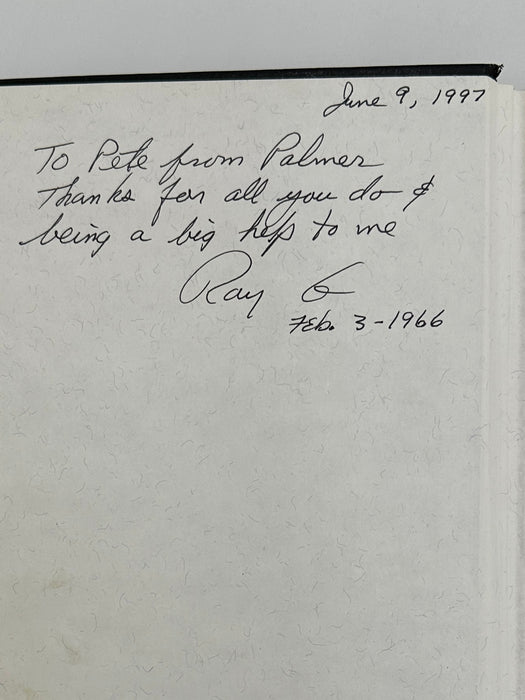 June 9, 1997
To Pete from Palmer
Thanks for all you do &
being a big help to me
Ray G
Feb. 3-1966